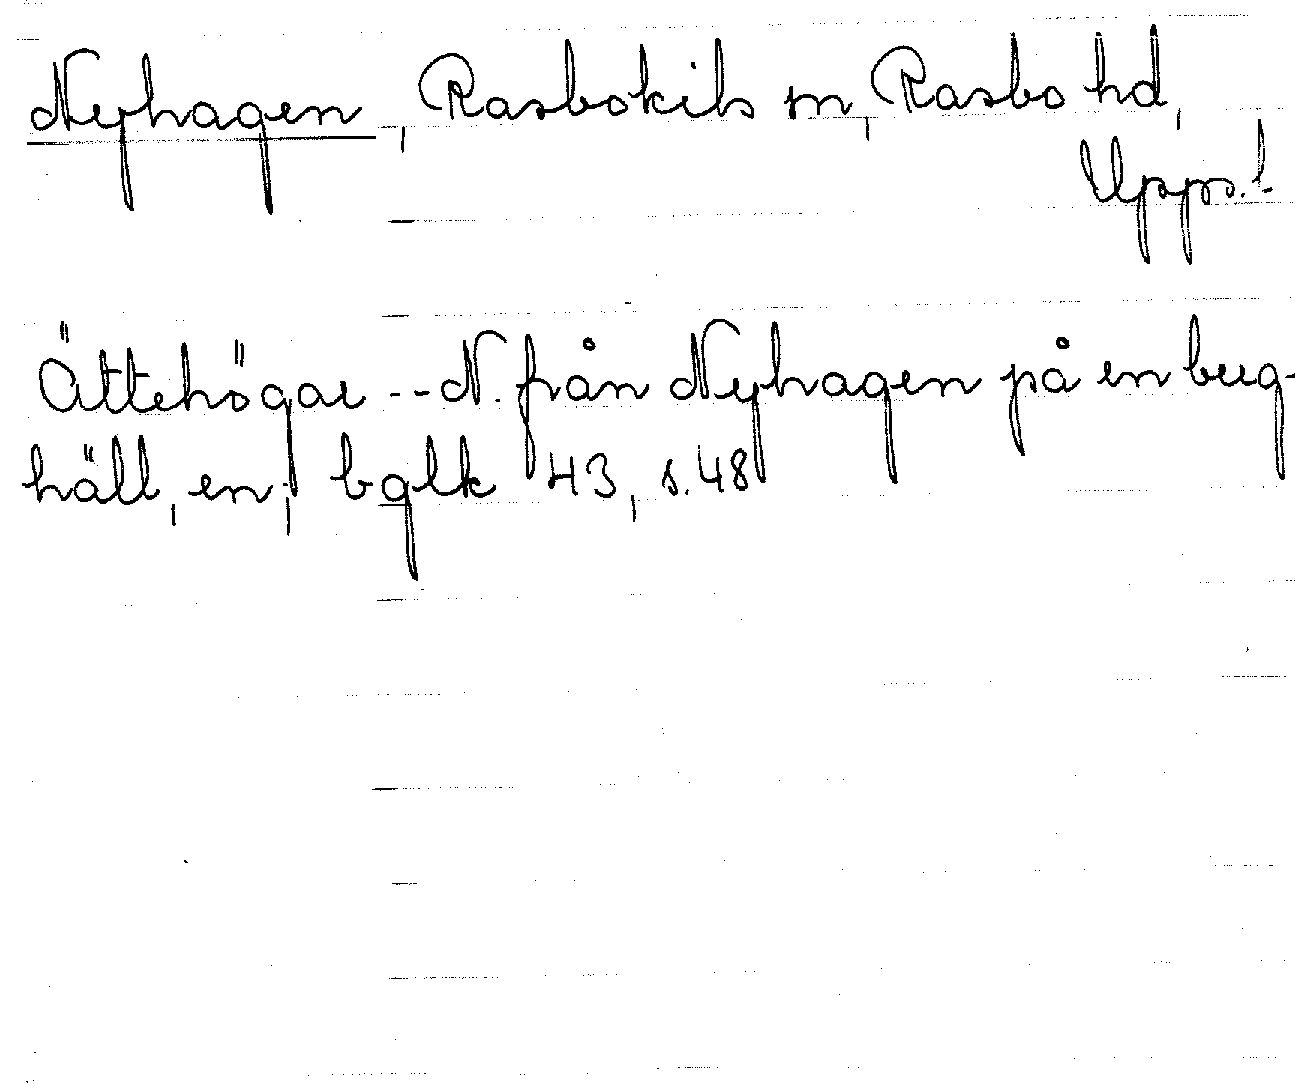 Nyhagen, Rasbokils sn, Rasbo hd,
Upps. l.
Ättehögar -- N. från Nyhagen på en berg-
häll, en; bglk 43, s. 48